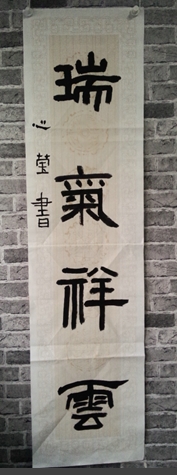 瑞氣祥雲
心莹書